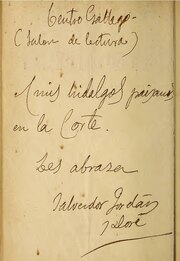 Centro Gallego-
(Salon de lectura)
A mis hidalgos paisanos
en la Corte.
Les abraza
Salvador Jordán